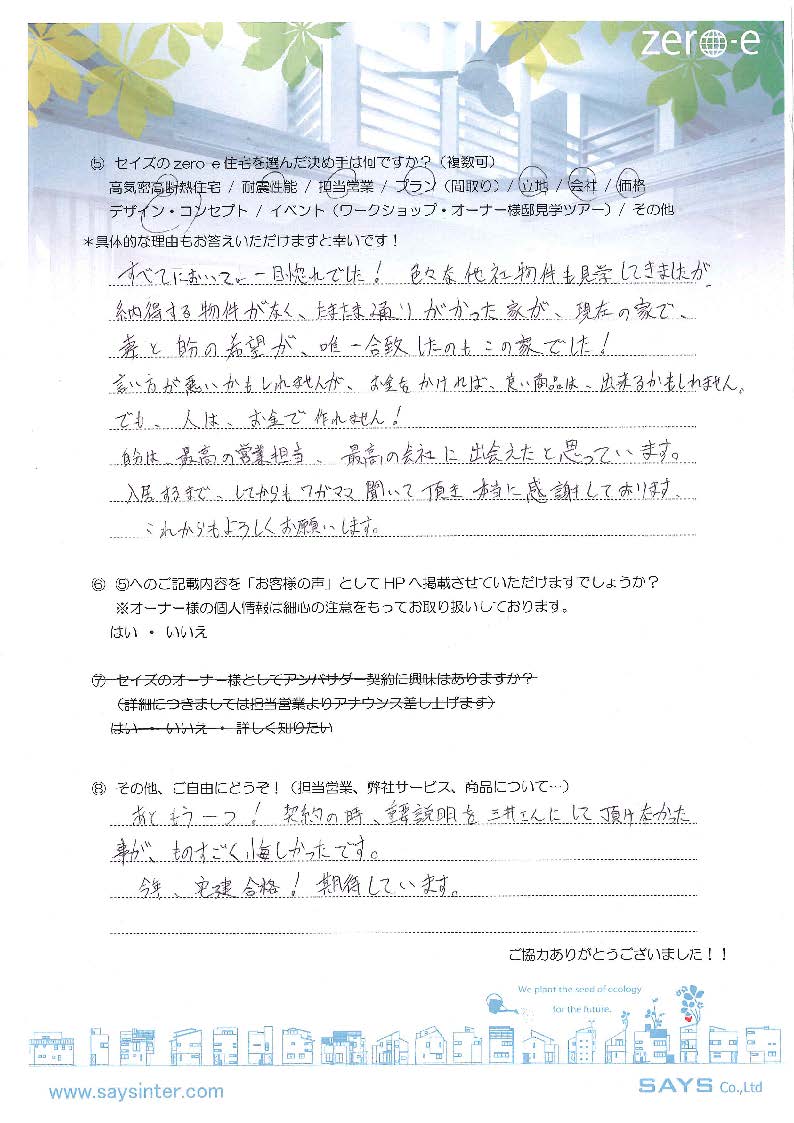 zero-e
⑤ セイズのzero-e住宅を選んだ決め手は何ですか？（複数可）
高気密高断熱住宅 / 耐震性能 / 担当営業 / プラン（間取り）/ 立地 / 会社 / 価格
デザイン・コンセプト / イベント（ワークショップ・オーナー様邸見学ツアー）/ その他
＊具体的な理由もお答えいただけますと幸いです！
すべてにおいて。一目惚れでした！ 色々な他社物件も見学してきましたが、
納得する物件がなく、たまたま通りがかった家が、現在の家で、
妻と自分の希望が、唯一合致したのもこの家でした！
言い方が悪いかもしれませんが、お金をかければ、良い商品は、出来るかもしれません。
でも、人は、お金で作れません！
自分は、最高の営業担当、最高の会社に出会えたと思っています。
入居するまで、してからもワガママ聞いて頂き本当に感謝しております。
これからもよろしくお願いします。
⑥ ⑤へのご記載内容を「お客様の声」としてHPへ掲載させていただけますでしょうか？
※オーナー様の個人情報は細心の注意をもってお取り扱いしております。
はい ・ いいえ
⑦ セイズのオーナー様としてアンバサダー契約に興味はありますか？
（詳細につきましては担当営業よりアナウンス差し上げます）
はい ・ いいえ ・ 詳しく知りたい
⑧ その他、ご自由にどうぞ！（担当営業、弊社サービス、商品について…）
あともう一つ！ 契約の時、重要説明を三井さんにして頂けなかった
事が、ものすごく悔しかったです。
今年、宅建合格！ 期待しています。
ご協力ありがとうございました！！
We plant the seed of ecology
for the future.
www.saysinter.com
SAYS Co.,Ltd